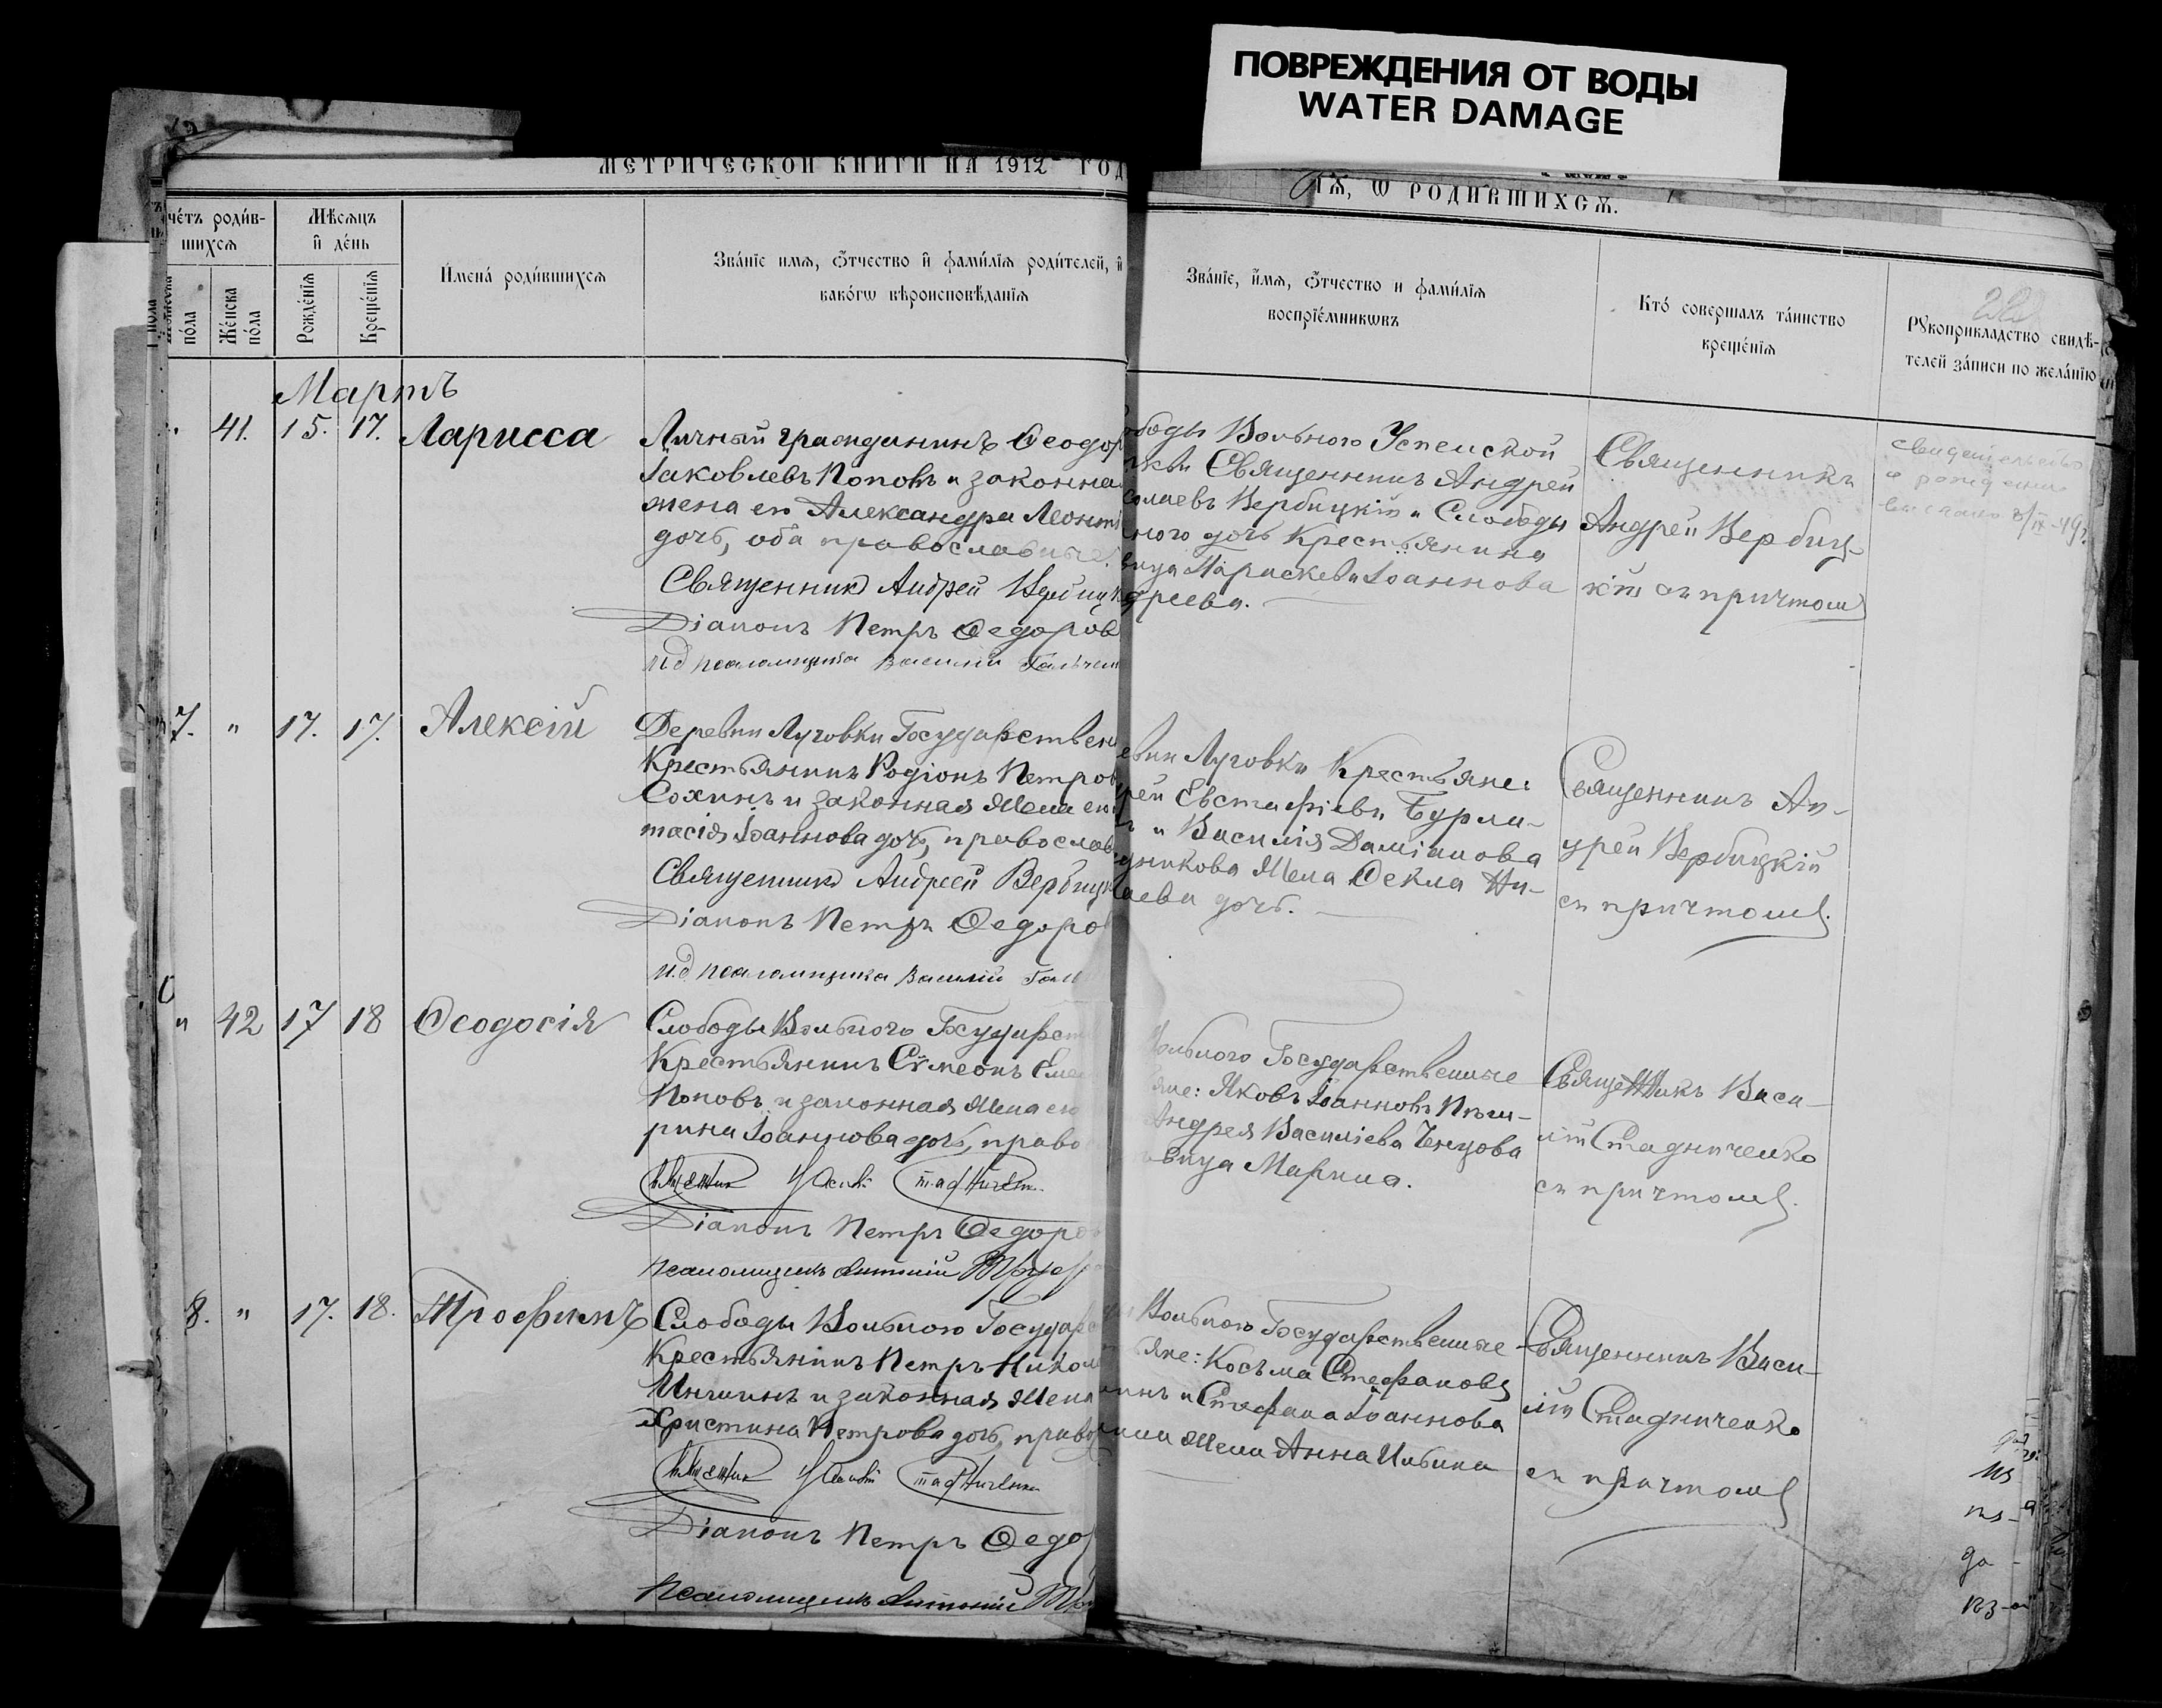 ПОВРЕЖДЕНИЯ ОТ ВОДЫ
WATER DAMAGE
МЕТРИЧЕСКОЙ КНИГИ НА 1912 ГОД
Ѿ РОДИВШИХСѦ.
чéтъ роди́в-
шихсѧ
Мѣсѧцъ
и҆ дéнь
пóла
Жéнска
пóла
Рождéнїѧ
Крещéнїѧ
И҆мена̀ роди́вшихсѧ
Звáнїе имѧ, ѻ҆́тчество и҆ фами́лїѧ роди́телей, и҆
какóгѡ вѣроисповѣ́данїѧ
Звáнїе, и҆́мѧ, ѻ҆́тчество и фами́лїѧ
воспрїéмникѡвъ
Ктó совершáлъ тáинство
крещéнїѧ
Рꙋкоприкладство свидѣ́-
телей зáписи по желáнїю
Мартъ
" 41. 15. 17. Ларисса
Личный гражданинъ Ѳеодор
Іаковлевъ Поповъ и законна
жена его Александра Леонт
дочь, оба православные.
Священникъ Андрей Вербицк
Діаконъ Петръ Ѳедоров
и.д псаломщика Василий Гальчен
ободы Вольного Успенской
Священникъ Андрей
олаевъ Вербицкій и Слободы
ного дочь Крестьянина
вица Параскева Іоаннова
дреева.
Священникъ
Андрей Вербиц-
кій съ причтомъ
свидетельство
о рождении
выслано 8/IX-49г.
7. " 17. 17. Алексій
Деревни Луговки Государствен
Крестьянинъ Родіонъ Петров
Сохинъ и законная жена его
тасія Іоаннова дочь, православ
Священникъ Андрей Вербицк
Діаконъ Петръ Ѳедоров
и.д псаломщика Василий Галь
евни Луговки Крестьяне:
рей Евстафіевъ Бурла-
и Василія Даміанова
дникова жена Ѳекла Ни-
аева дочь.
Священникъ Ан-
дрей Вербицкій
съ причтомъ.
" 42 17 18 Ѳеодосія
Слободы Вольного Государст
Крестьянинъ Сѵмеонъ Емел
Поповъ и законная жена его
рина Іоаннова дочь, право
Священник Василій Стадниченко
Діаконъ Петръ Ѳедоро
Псаломщикъ Антоній
Вольного Государственные
яне: Яковъ Іоанновъ
Андрея Василіева Ченцова
вица Марина.
Священникъ Васи-
лій Стадниченко
съ причтомъ.
8. " 17. 18. Трофимъ
Слободы Вольного Государс
Крестьянинъ Петръ Никол
Иншинъ и законная жена
Христина Петрова дочь, право
Священник Василій Стадниченко
Діаконъ Петръ Ѳедо
Псаломщикъ Антоній
Вольного Государственные
яне: Косьма Стефановъ
инъ и Стефана Іоаннова
жена Анна Ильина
Священникъ Васи-
лій Стадниченко
съ причтомъ